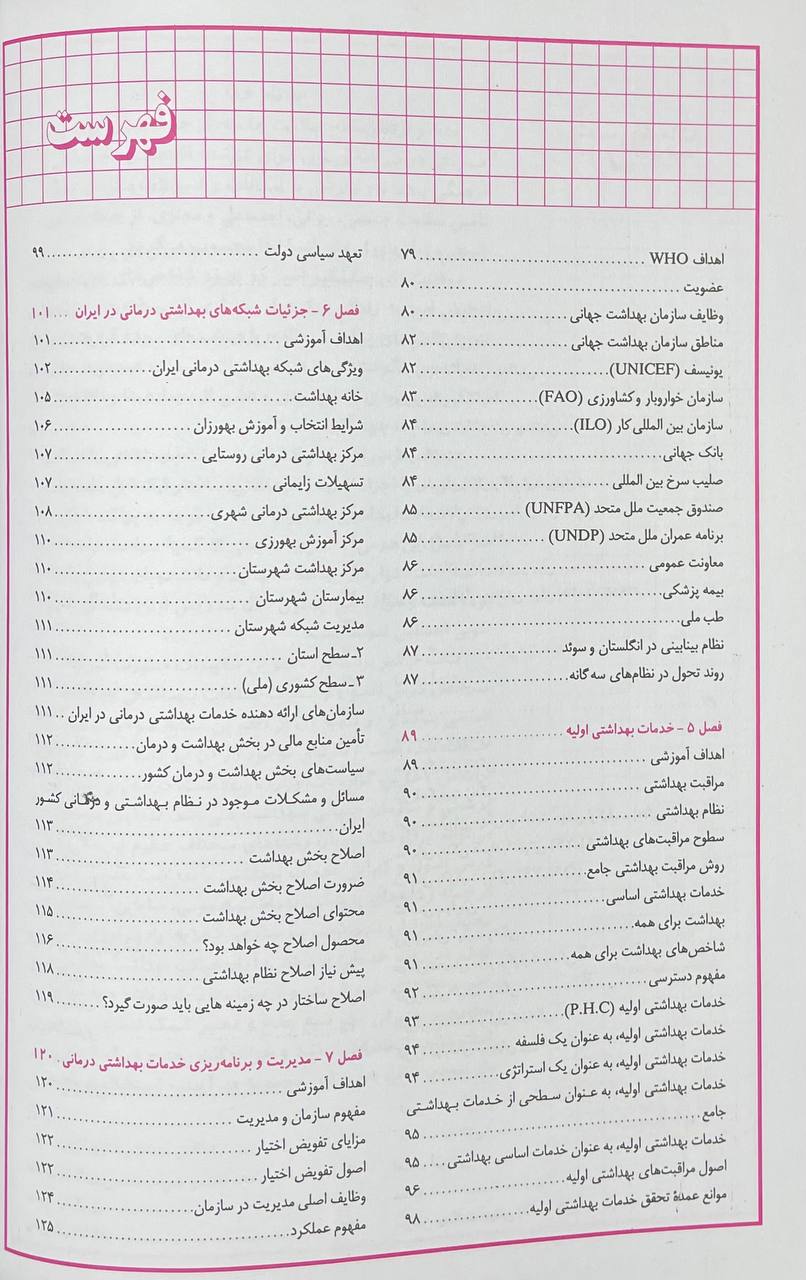 فهرست
اهداف WHO ........ ۷۹
عضویت ........ ۸۰
وظایف سازمان بهداشت جهانی ........ ۸۰
مناطق سازمان بهداشت جهانی ........ ۸۲
یونیسف (UNICEF) ........ ۸۲
سازمان خواروبار و کشاورزی (FAO) ........ ۸۳
سازمان بین المللی کار (ILO) ........ ۸۴
بانک جهانی ........ ۸۴
صلیب سرخ بین المللی ........ ۸۴
صندوق جمعیت ملل متحد (UNFPA) ........ ۸۵
برنامه عمران ملل متحد (UNDP) ........ ۸۵
معاونت عمومی ........ ۸۶
بیمه پزشکی ........ ۸۶
طب ملی ........ ۸۶
نظام بینابینی در انگلستان و سوئد ........ ۸۷
روند تحول در نظام‌های سه گانه ........ ۸۷
فصل ۵ - خدمات بهداشتی اولیه ........ ۸۹
اهداف آموزشی ........ ۸۹
مراقبت بهداشتی ........ ۹۰
نظام بهداشتی ........ ۹۰
سطوح مراقبت‌های بهداشتی ........ ۹۰
روش مراقبت بهداشتی جامع ........ ۹۱
خدمات بهداشتی اساسی ........ ۹۱
بهداشت برای همه ........ ۹۱
شاخص‌های بهداشت برای همه ........ ۹۱
مفهوم دسترسی ........ ۹۲
خدمات بهداشتی اولیه (P.H.C) ........ ۹۳
خدمات بهداشتی اولیه، به عنوان یک فلسفه ........ ۹۴
خدمات بهداشتی اولیه، به عنوان یک استراتژی ........ ۹۴
خدمات بهداشتی اولیه، به عنوان سطحی از خدمات بهداشتی
جامع ........ ۹۵
خدمات بهداشتی اولیه، به عنوان خدمات اساسی بهداشتی .... ۹۵
اصول مراقبت‌های بهداشتی اولیه ........ ۹۶
موانع عمدهٔ تحقق خدمات بهداشتی اولیه ........ ۹۸
تعهد سیاسی دولت ........ ۹۹
فصل ۶ - جزئیات شبکه‌های بهداشتی درمانی در ایران ... ۱۰۱
اهداف آموزشی ........ ۱۰۱
ویژگی‌های شبکه بهداشتی درمانی ایران ........ ۱۰۲
خانه بهداشت ........ ۱۰۵
شرایط انتخاب و آموزش بهورزان ........ ۱۰۶
مرکز بهداشتی درمانی روستایی ........ ۱۰۷
تسهیلات زایمانی ........ ۱۰۷
مرکز بهداشتی درمانی شهری ........ ۱۰۸
مرکز آموزش بهورزی ........ ۱۱۰
مرکز بهداشت شهرستان ........ ۱۱۰
بیمارستان شهرستان ........ ۱۱۰
مدیریت شبکه شهرستان ........ ۱۱۱
۲ـ سطح استان ........ ۱۱۱
۳ـ سطح کشوری (ملی) ........ ۱۱۱
سازمان‌های ارائه دهنده خدمات بهداشتی درمانی در ایران .. ۱۱۱
تأمین منابع مالی در بخش بهداشت و درمان ........ ۱۱۲
سیاست‌های بخش بهداشت و درمان کشور ........ ۱۱۲
مسائل و مشکلات موجود در نظام بهداشتی و درمانی کشور
ایران ........ ۱۱۳
اصلاح بخش بهداشت ........ ۱۱۳
ضرورت اصلاح بخش بهداشت ........ ۱۱۴
محتوای اصلاح بخش بهداشت ........ ۱۱۵
محصول اصلاح چه خواهد بود؟ ........ ۱۱۶
پیش نیاز اصلاح نظام بهداشتی ........ ۱۱۸
اصلاح ساختار در چه زمینه هایی باید صورت گیرد؟ ........ ۱۱۹
فصل ۷ - مدیریت و برنامه‌ریزی خدمات بهداشتی درمانی . ۱۲۰
اهداف آموزشی ........ ۱۲۰
مفهوم سازمان و مدیریت ........ ۱۲۱
مزایای تفویض اختیار ........ ۱۲۲
اصول تفویض اختیار ........ ۱۲۲
وظایف اصلی مدیریت در سازمان ........ ۱۲۴
مفهوم عملکرد ........ ۱۲۵